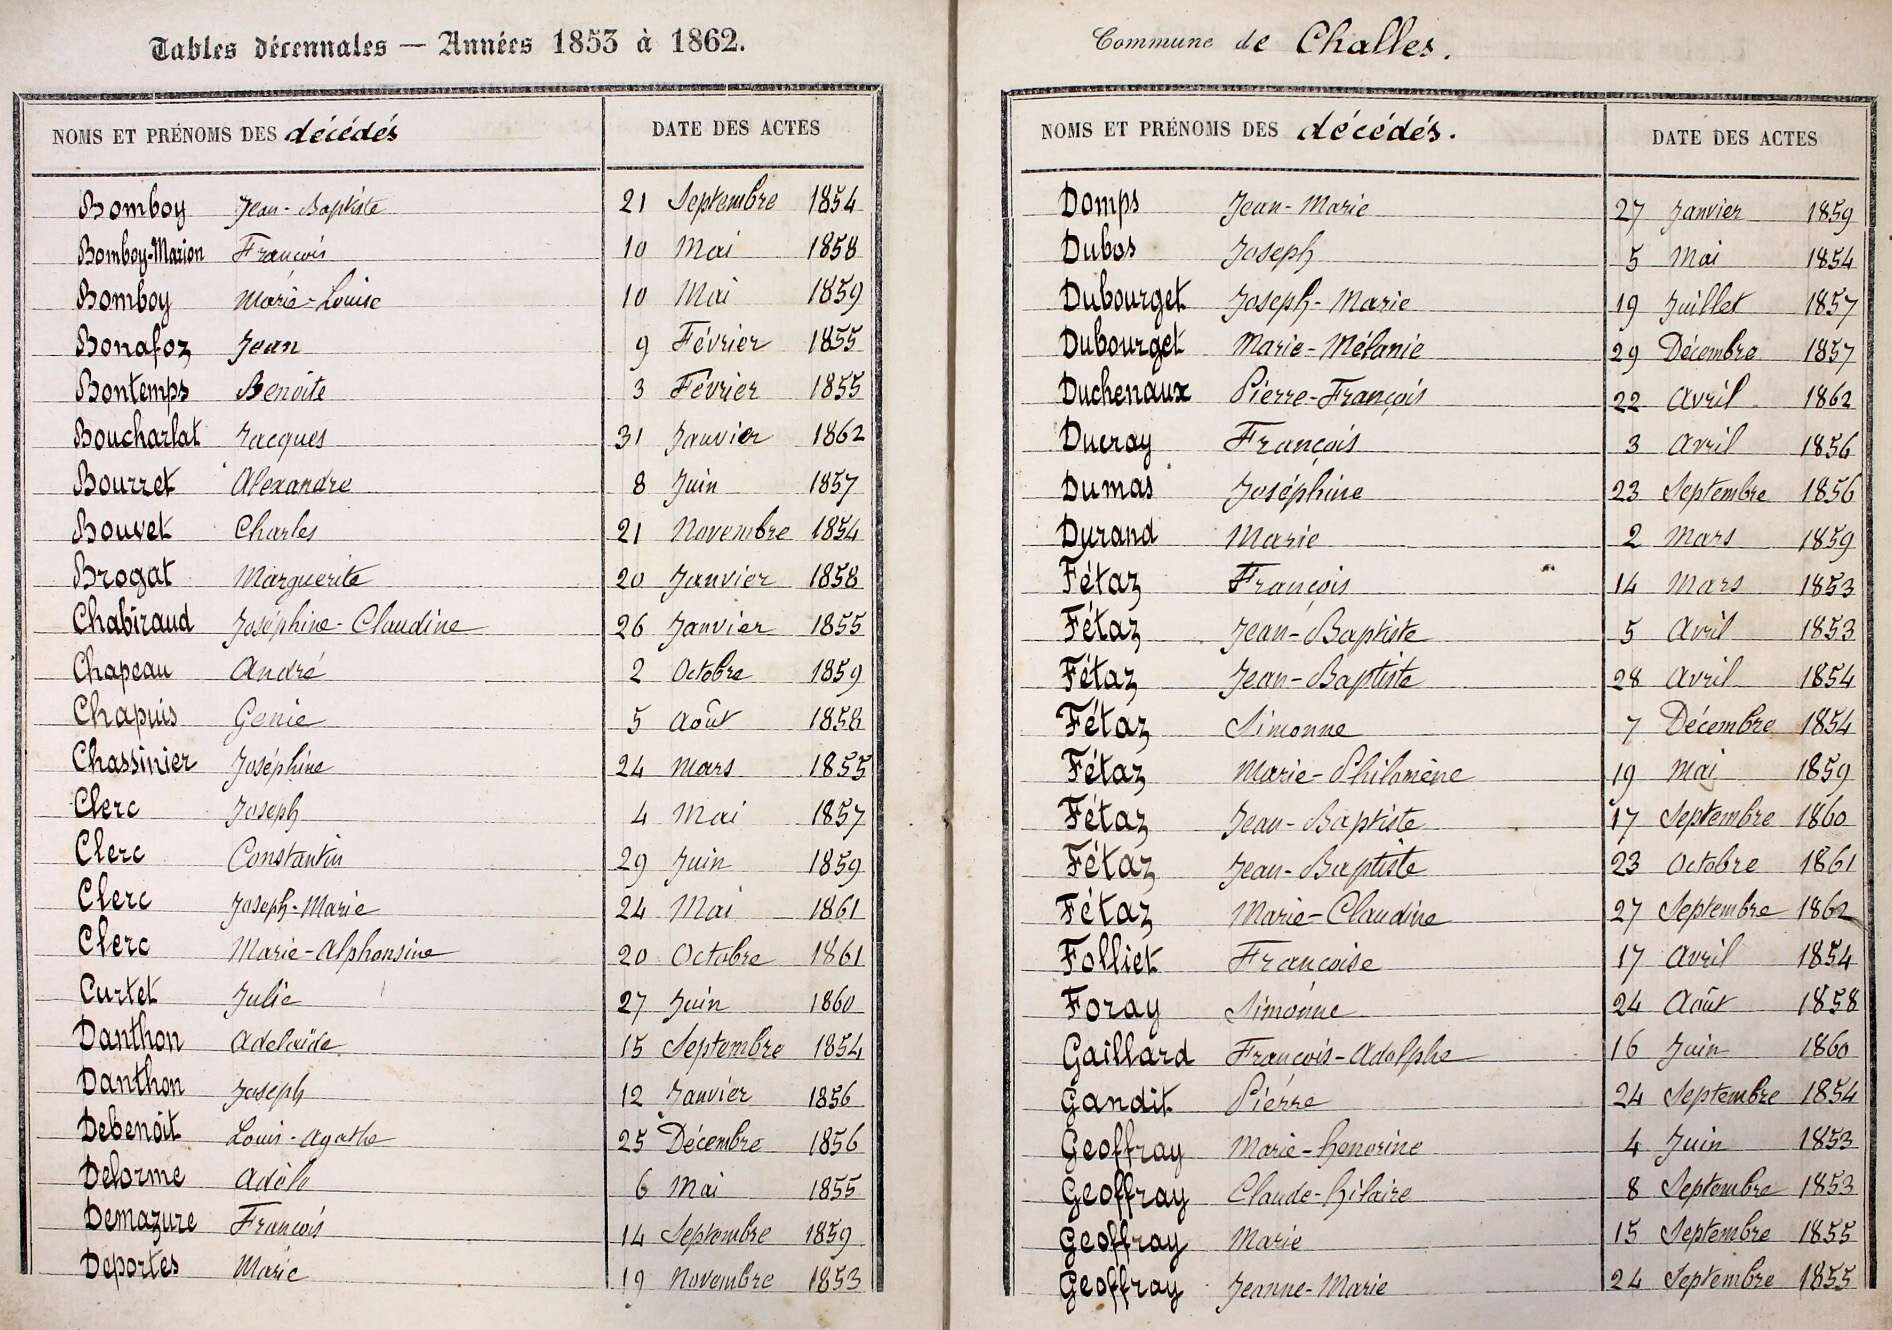 Tables décennales — Années 1853 à 1862.
NOMS ET PRÉNOMS DES décédés DATE DES ACTES
Bomboy Jean-Baptiste 21 Septembre 1854
Bomboy-Marion François 10 Mai 1858
Bomboy Marie-Louise 10 Mai 1859
Bonafoz Jean 9 Février 1855
Bontemps Benoite 3 Février 1855
Boucharlat Jacques 31 Janvier 1862
Bourret Alexandre 8 Juin 1857
Bouvet Charles 21 Novembre 1854
Brogat Marguerite 20 Janvier 1858
Chabiraud Joséphine-Claudine 26 Janvier 1855
Chapeau André 2 Octobre 1859
Chapuis Genie 5 Août 1858
Chassinier Joséphine 24 Mars 1855
Clerc Joseph 4 Mai 1857
Clerc Constantin 29 Juin 1859
Clerc Joseph-Marie 24 Mai 1861
Clerc Marie-Alphonsine 20 Octobre 1861
Curtet Julie 27 Juin 1860
Danthon Adelaïde 15 Septembre 1854
Danthon Joseph 12 Janvier 1856
Debenoit Louis-Agathe 25 Décembre 1856
Delorme Adèle 6 Mai 1855
Demazure François 14 Septembre 1859
Deportes Marie 19 Novembre 1853
Commune de Challes.
NOMS ET PRÉNOMS DES décédés. DATE DES ACTES
Domps Jean-Marie 27 Janvier 1859
Dubos Joseph 5 Mai 1854
Dubourget Joseph-Marie 19 Juillet 1857
Dubourget Marie-Mélanie 29 Décembre 1857
Duchenaux Pierre-François 22 Avril 1862
Ducray François 3 Avril 1856
Dumas Joséphine 23 Septembre 1856
Durand Marie 2 Mars 1859
Fétaz François 14 Mars 1853
Fétaz Jean-Baptiste 5 Avril 1853
Fétaz Jean-Baptiste 28 Avril 1854
Fétaz Simonne 7 Décembre 1854
Fétaz Marie-Philomène 19 Mai 1859
Fétaz Jean-Baptiste 17 Septembre 1860
Fétaz Jean-Baptiste 23 Octobre 1861
Fétaz Marie-Claudine 27 Septembre 1862
Folliet Françoise 17 Avril 1854
Foray Simonne 24 Août 1858
Gaillard François-Adolphe 16 Juin 1860
Gandit Pierre 24 Septembre 1854
Geoffray Marie-honorine 4 Juin 1853
Geoffray Claude-hilaire 8 Septembre 1853
Geoffray Marie 15 Septembre 1855
Geoffray Jeanne-Marie 24 Septembre 1855